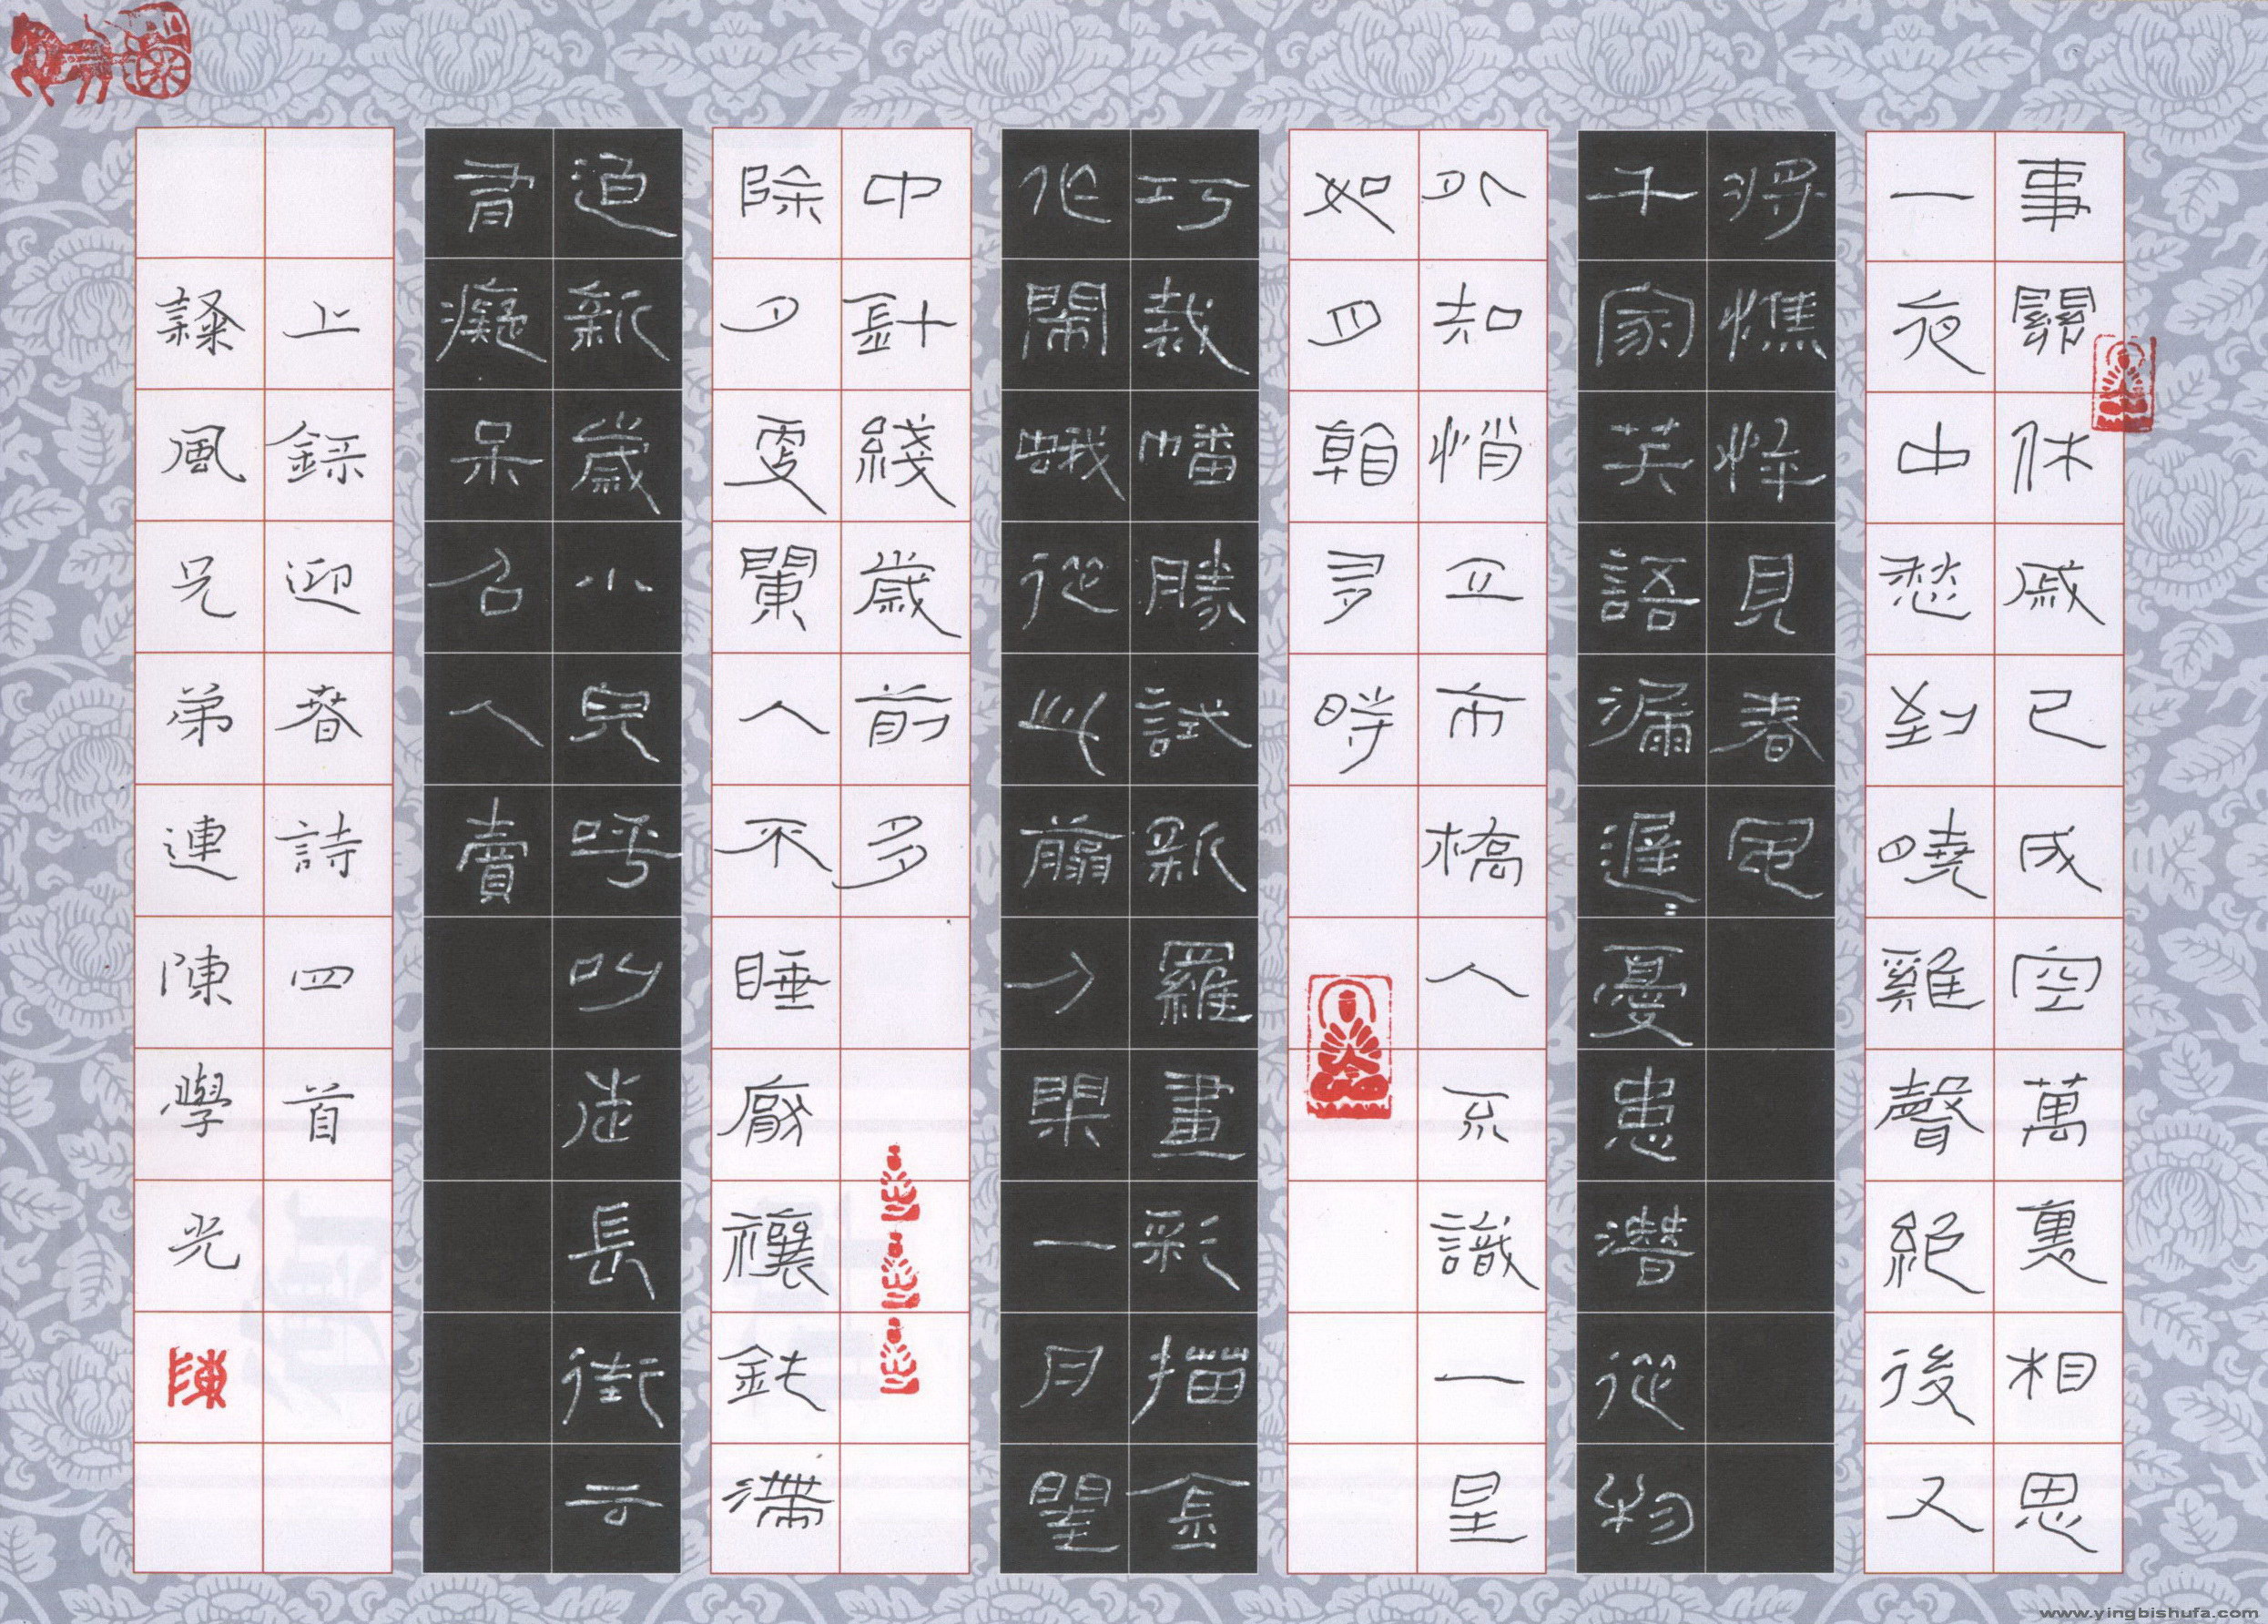 事關休戚已成空萬裏相思
一夜中愁到曉雞聲絕後又
將憔悴見春風
千家笑語漏遲:憂患潛從物
外知悄立市橋人不識一星
如月看多時
巧裁幡勝試新羅畫彩描金
作鬧蛾從此剪刀閑一月閨
中針綫歲前多
除夕更闌人不睡厭禳鈍滯
迫新歲小兒呼叫走長街云
有癡呆召人賣
上錄迎春詩四首
風兄弟連陳學光
陳
www.yingbishufa.com